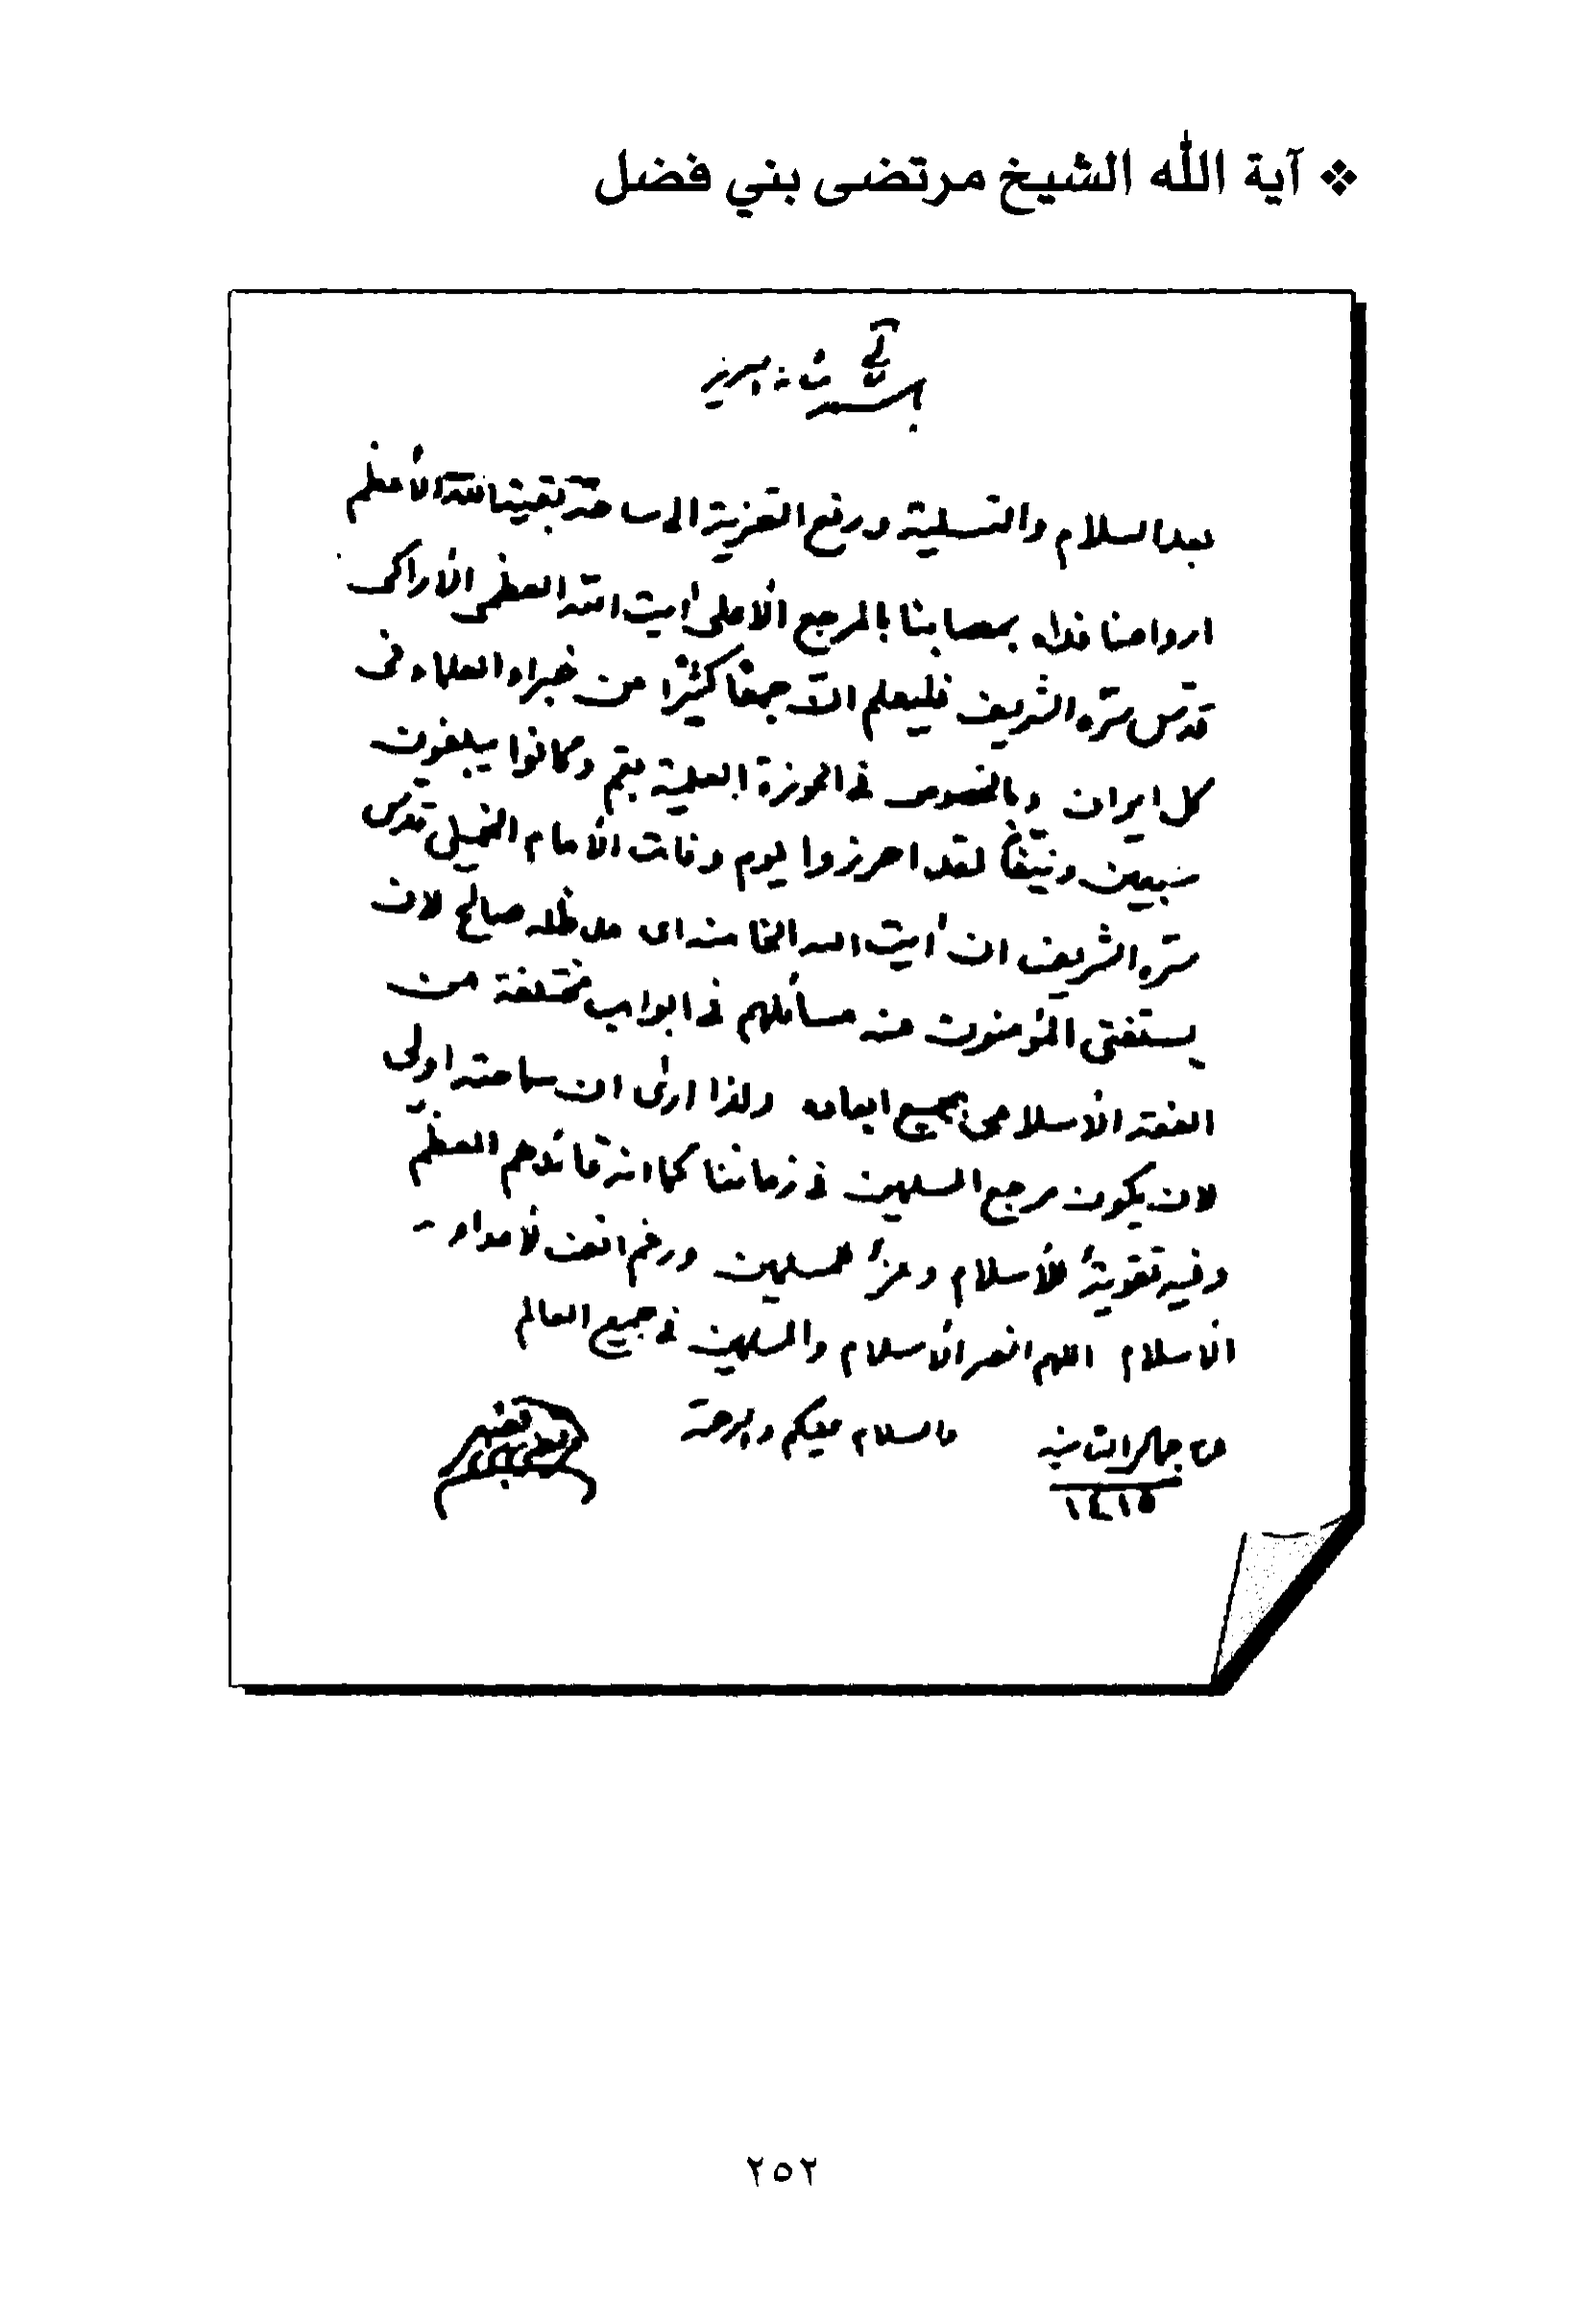 ❖ آية الله الشيخ مرتضى بني فضل
بعد السلام والتسلية ورفع التعزية الى ساحة بقية الله الأعظم
ارواحنا فداه بمصابنا بالمرجع الأعلى آيت الله العظمى الأراكى
قدّس سرّه الشريف فليعلم انّ جمعًا كثيرًا من خبراء العلماء فى
كل ايران وبالخصوص فى الحوزة العلمية بقم وكانوا يبلغون
سبعين ونيّفاً لقد احرزوا يوم وفات الأمام الخمينى قدّس
سرّه الشريف ان آيت الله الخامنه اى مد ظله صالح لان
يستفتى المؤمنون منه مسائلهم فى ابواب مختلفة من
الفقه الأسلامى بجميع ابعاده ولذا ارى ان سماحته اولى
لان يكون مرجع المسلمين فى زماننا كما انه قائدهم المعظم
وفيه تقوية للأسلام وعزّ للمسلمين ورغم انف لأعداء
الأسلام اللهم انصر الأسلام والمسلمين فى جميع العالم
والسلام عليكم ورحمة
١٤١٥
٢٥٢